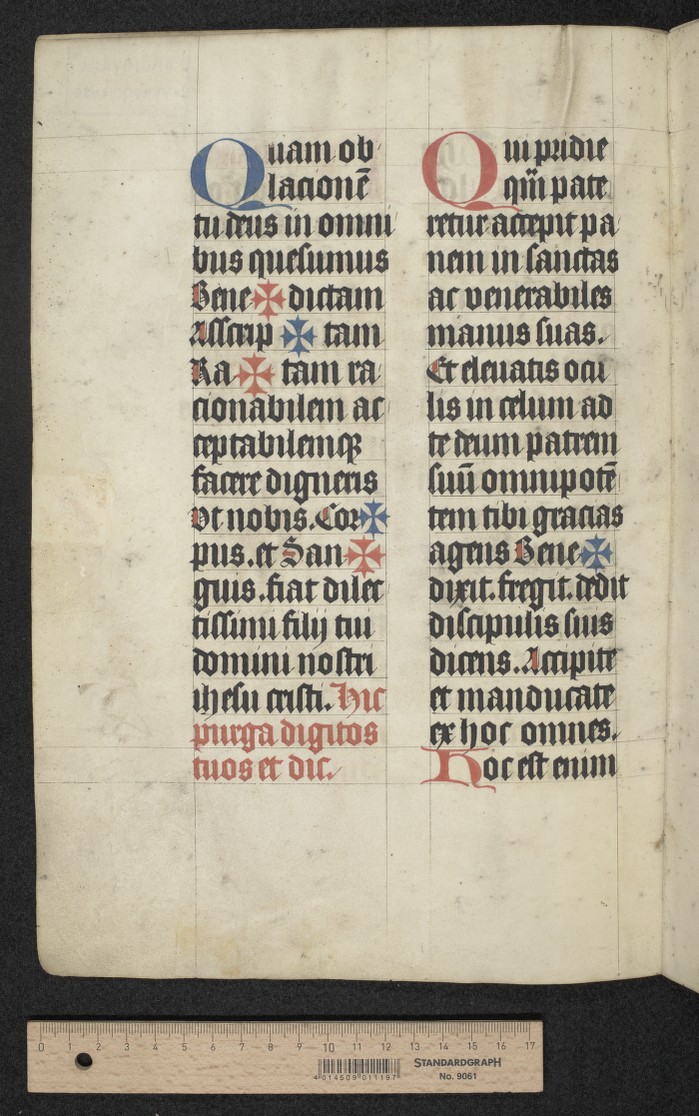 Quam ob
lacionē
tu deus in omni
bus quesumus
Bene ✠ dictam
Asscrip ✠ tam
Ra ✠ tam ra
cionabilem ac
ceptabilemqꝫ
facere digneris
Vt nobis. Cor ✠
pus. et San ✠
guis. fiat dilec
tissimi filij tui
domini nostri
ihesu cristi. Hic
purga digitos
tuos et dic.
Qui pridie
qm̄ pate
retur accepit pa
nem in sanctas
ac venerabiles
manus suas.
Et eleuatis ocu
lis in celum ad
te deum patrem
suū omnipotē
tem tibi gracias
agens Bene ✠
dixit. fregit. dedit
discipulis suis
dicens. Accipite
et manducate
ex hoc omnes.
Hoc est enim
0 1 2 3 4 5 6 7 8 9 10 11 12 13 14 15 16 17
4 014509 011197
STANDARDGRAPH
No. 9061